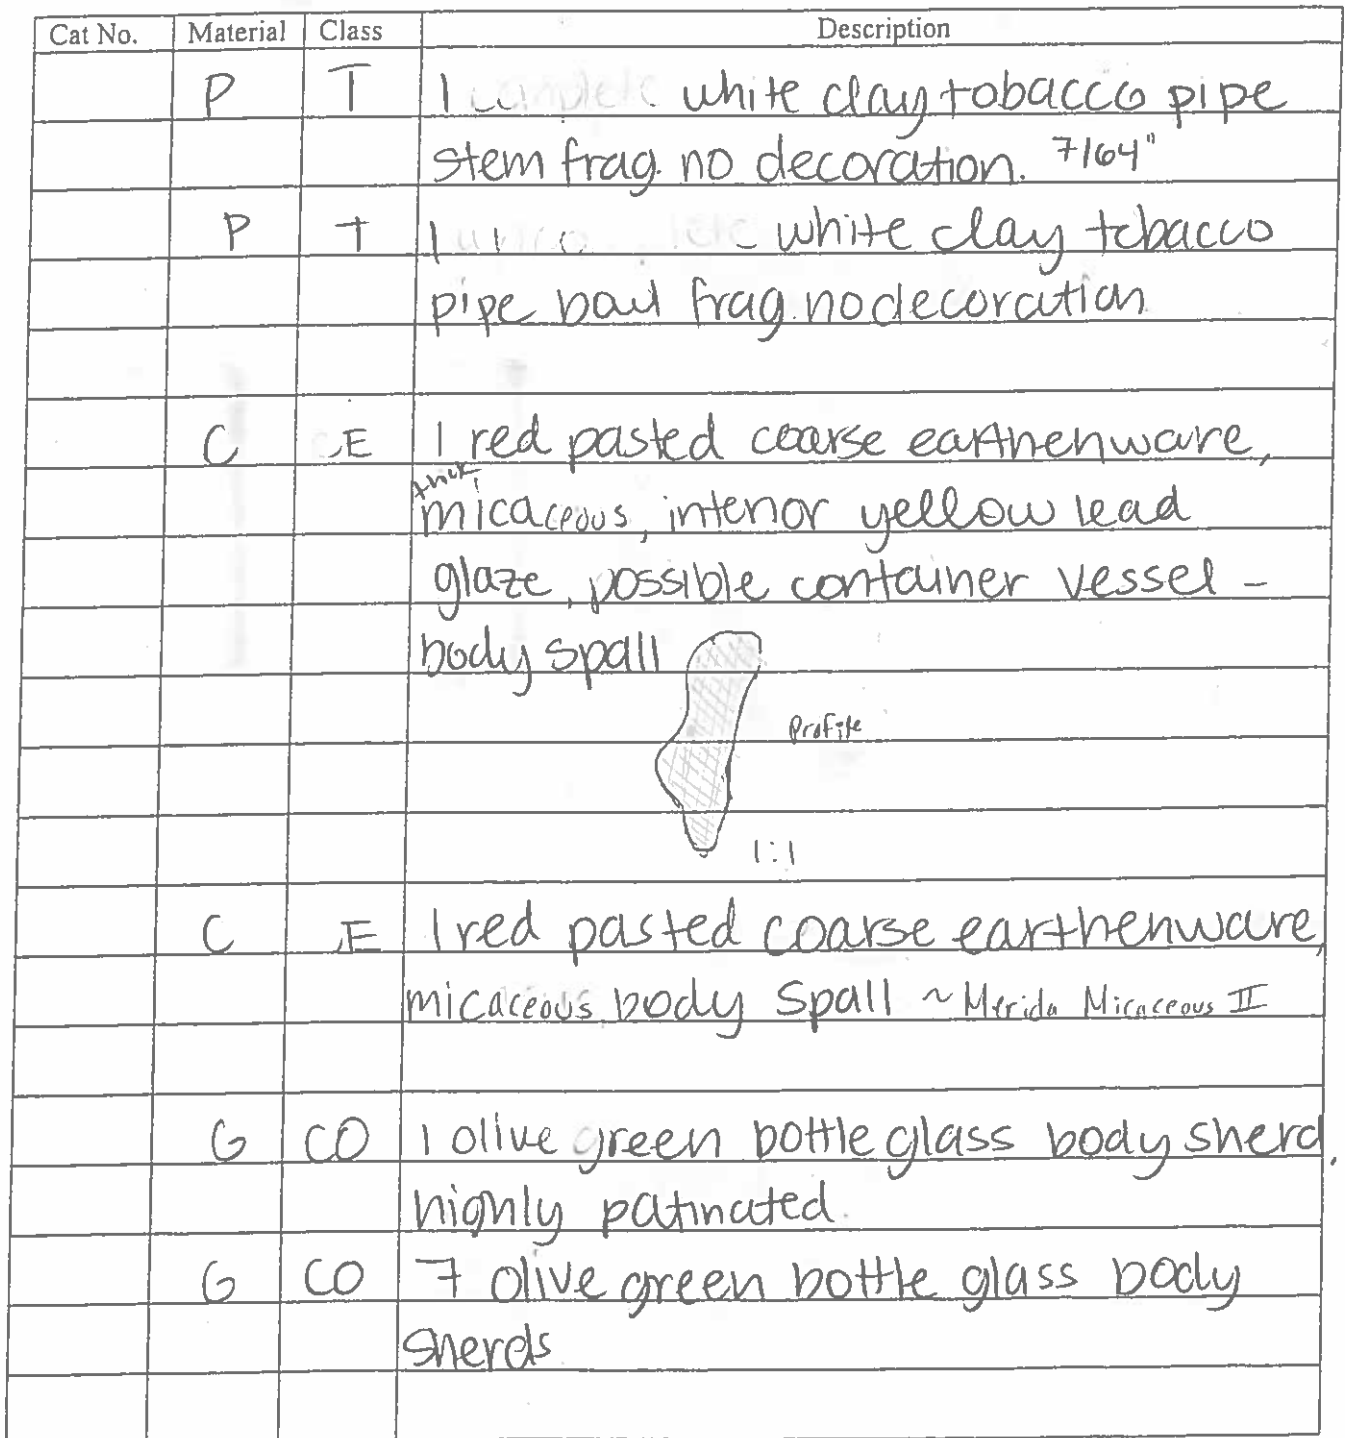 Cat No. Material Class Description
P T 1 complete white clay tobacco pipe
stem frag. no decoration. 7/64"
P T 1 white clay tobacco
pipe bowl frag. no decoration
C CE 1 red pasted coarse earthenware,
thick,
micaceous, interior yellow lead
glaze, possible container vessel -
body spall
Profile
1:1
C E 1 red pasted coarse earthenware,
micaceous body spall ~ Merida Micaceous II
G CO 1 olive green bottle glass body sherd,
highly patinated.
G CO 7 olive green bottle glass body
sherds